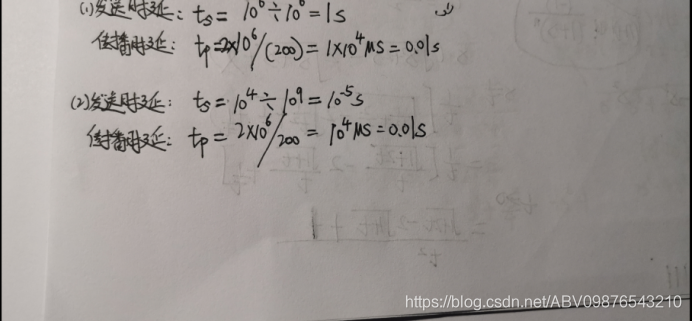 (1)发送时延: ts = 10⁶ ÷ 10⁶ = 1s
传播时延: tp = 2×10⁶/(200) = 1×10⁴ μs = 0.01s
(2)发送时延: ts = 10⁴ ÷ 10⁹ = 10⁻⁵s
传播时延: tp = 2×10⁶/200 = 10⁴ μs = 0.01s
https://blog.csdn.net/ABV09876543210